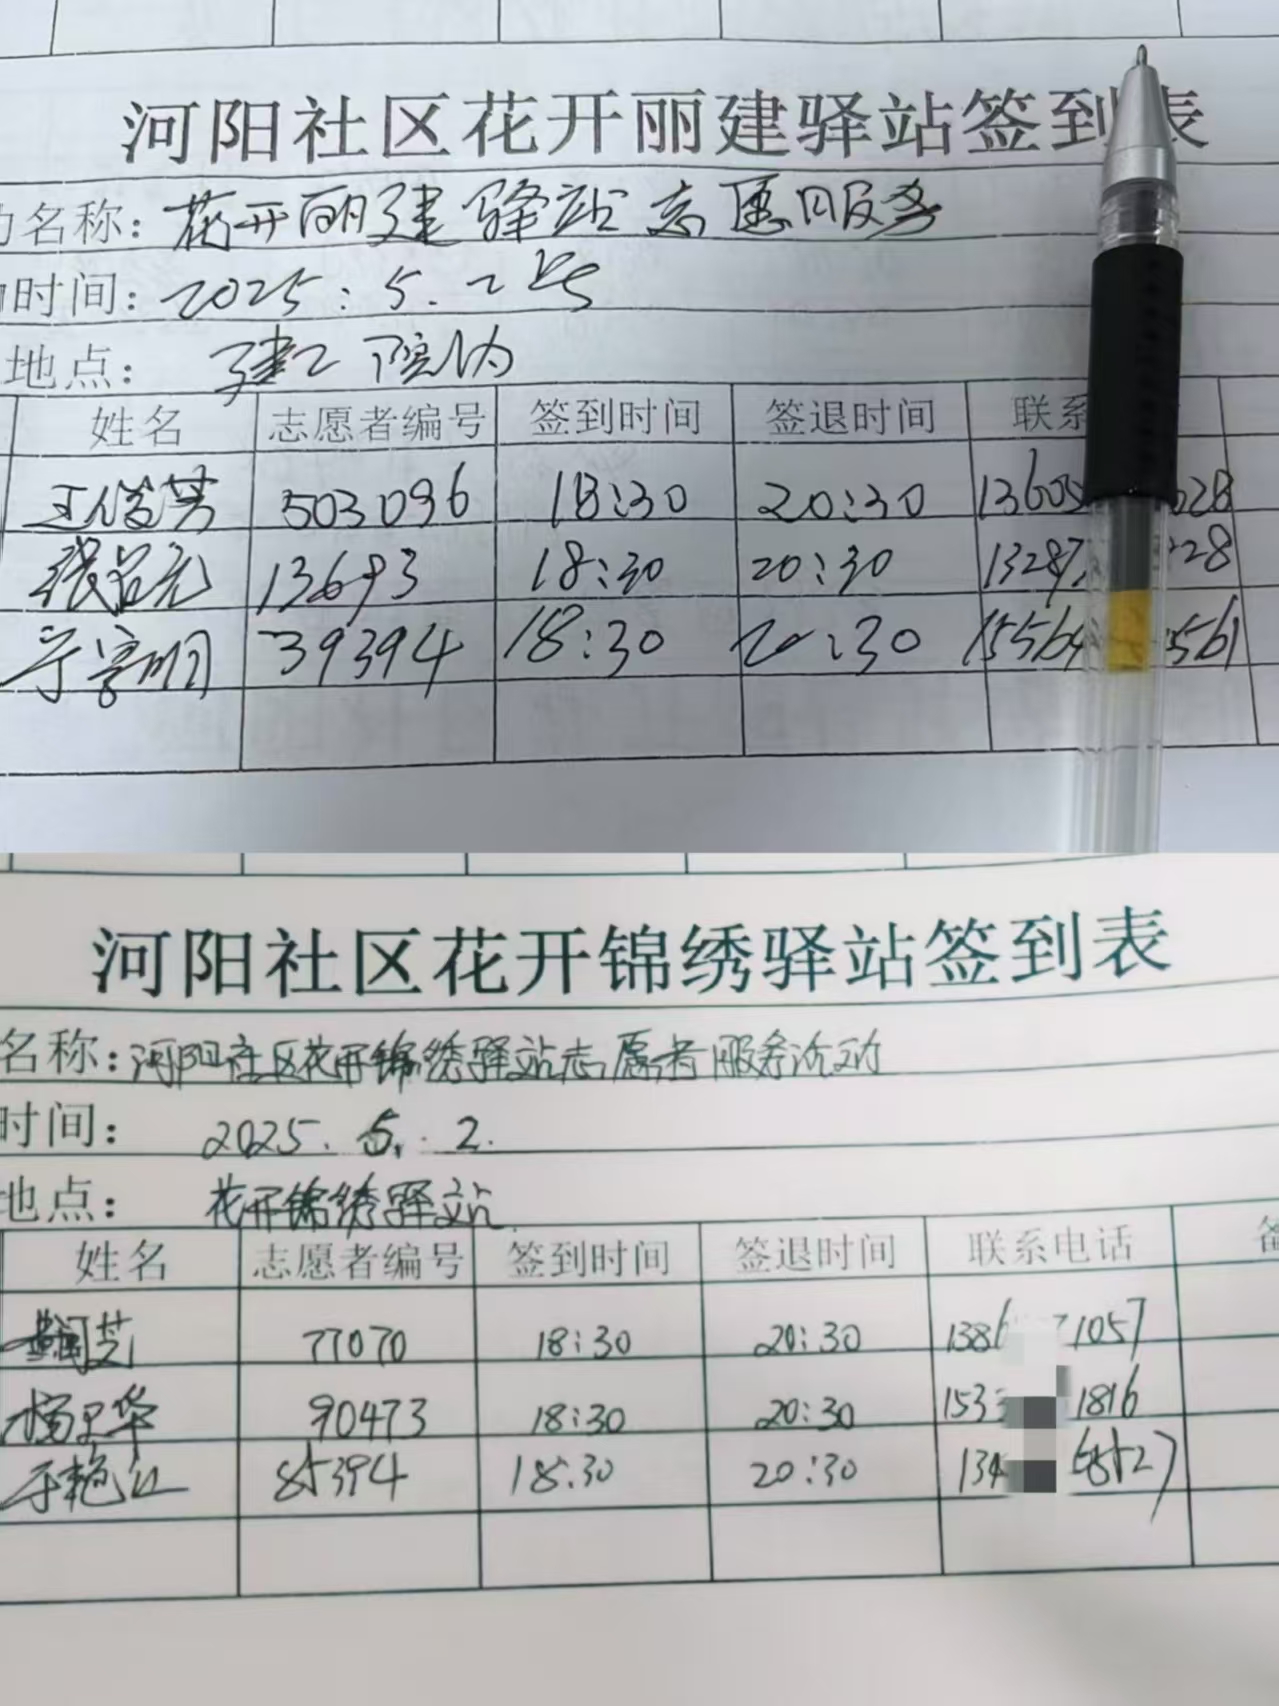 河阳社区花开丽建驿站签到表
名称：花开丽建驿站志愿服务
时间：2025.5.2号
地点：建工院内
姓名 志愿者编号 签到时间 签退时间 联系
503096 18:30 20:30 13605 628
13693 18:30 20:30 13287 228
39394 18:30 20:30 15564 561
河阳社区花开锦绣驿站签到表
名称：河阳社区花开锦绣驿站志愿者服务活动
时间： 2025.5.2.
地点： 花开锦绣驿站
姓名 志愿者编号 签到时间 签退时间 联系电话
77070 18:30 20:30 1386 1057
90473 18:30 20:30 153 1816
于艳江 85394 18:30 20:30 134 68527